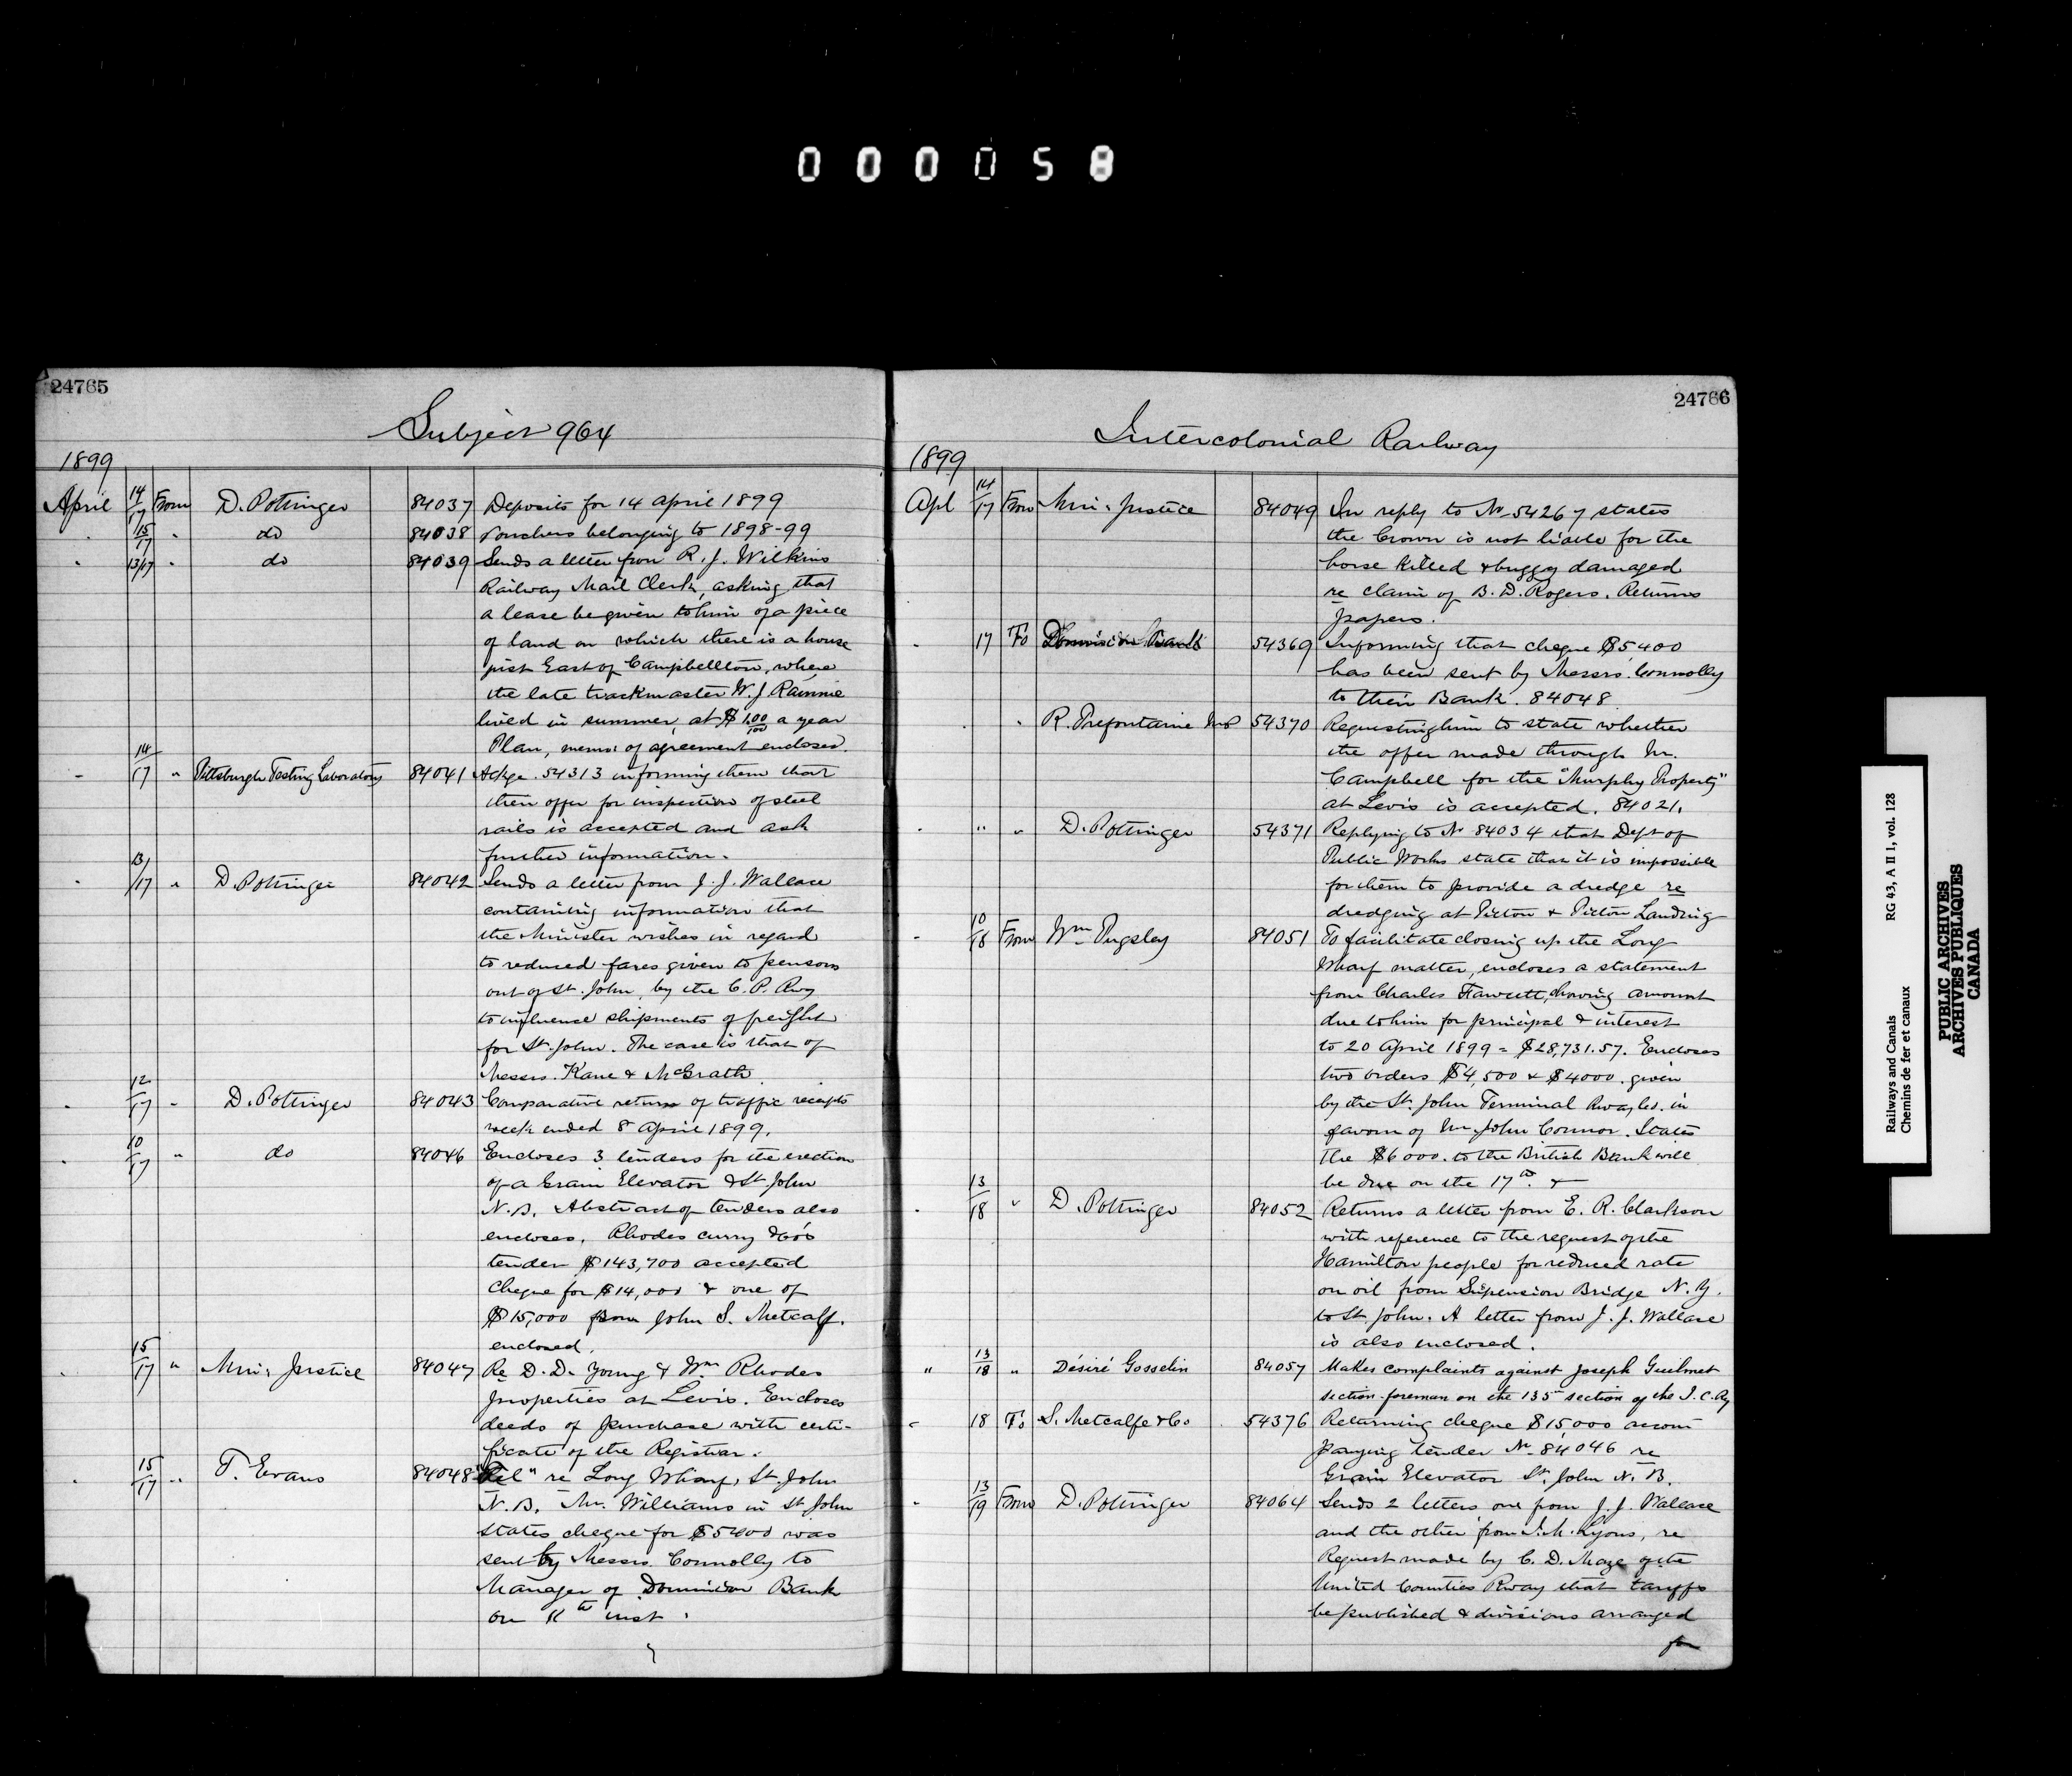 000058
24765
Subject 964
1899
April 14/17 From D. Pottinger 84037 Deposits for 14 April 1899
" 15/17 " do 84038 Vouchers belonging to 1898-99
" 13/17 " do 84039 Sends a letter from R. J. Wilkins
Railway Mail Clerk, asking that
a lease be given to him of a piece
of land on which there is a house
just East of Campbellton, where
the late trackmaster W. J. Rainnie
lived in summer, at $1.00/100 a year
Plan, memo: of agreement enclosed.
" 14/17 " Pittsburgh Testing Laboratory 84041 Ackge. 54313 informing them that
their offer for inspection of steel
rails is accepted and ask
further information.
" 13/17 " D. Pottinger 84042 Sends a letter from J. J. Wallace
containing information that
the Minister wishes in regard
to reduced fares given to persons
out of St. John, by the C. P. Rwy
to influence shipments of freight
for St. John. The case is that of
Messrs. Kane & McGrath.
" 12/17 " D. Pottinger 84043 Comparative return of traffic receipts
week ended 8 April 1899.
" 10/17 " do 84046 Encloses 3 tenders for the erection
of a Grain Elevator @ St. John
N.B. Abstract of tenders also
encloses. Rhodes curry & Co's
tender $143,700 accepted
Cheque for $14,000 & one of
$15,000 from John S. Metcalf.
enclosed.
" 15/17 " Min: Justice 84047 Re D. D. Young & Wm Rhodes
properties at Levis. Encloses
deeds of purchase with certi-
ficate of the Registrar.
" 15/17 " T. Evans 84048 "Tel" re Long Wharf, St. John
N.B. Mr. Williams in St John
states cheque for $5400 was
sent by Messrs. Connolly to
Manager of Dominion Bank
on th inst.
24766
Intercolonial Railway
1899
Apl 14/17 From Min: Justice 84049 In reply to No 54267 states
the Crown is not liable for the
horse killed & buggy damaged
re claim of B. D. Rogers. Returns
papers.
" 17 To Dominion Bank 54369 Informing that cheque $5,400
has been sent by Messrs. Connolly
to their Bank. 84048
" " R. Prefontaine MP 54370 Requesting him to state whether
the offer made through Mr.
Campbell for the "Murphy Property"
at Levis is accepted. 84021.
" " " D. Pottinger 54371 Replying to No 84034 that Dept of
Public Works state that it is impossible
for them to provide a dredge re
dredging at Pictou & Pictou Landing
" 10/18 From Wm Pugsley 84051 To facilitate closing up the Long
Wharf matter, encloses a statement
from Charles Fawcett, showing amount
due to him for principal & interest
to 20 April 1899 = $28,731.57. Encloses
two orders $4,500 & $4000. given
by the St. John Terminal Rway Co. in
favour of Mr John Connor. States
the $6000. to the British Bank will
be due on the 17th. &
" 13/18 " D. Pottinger 84052 Returns a letter from E. R. Clarkson
with reference to the request of the
Hamilton people for reduced rate
on oil from Suspension Bridge N. Y.
to St. John. A letter from J. J. Wallace
is also enclosed.
" 13/18 " Désiré Gosselin 84057 Makes complaints against Joseph Guilmet
section-foreman on the 135th section of the I. C. Ry
" 18 To S. Metcalfe & Co 54376 Returning cheque $15,000 accom
panying tender No 84,046 re
Grain Elevator St. John N. B.
" 13/19 From D. Pottinger 84064 Sends 2 letters one from J. J. Wallace
and the other from J. M. Lyons, re
Request made by C. D. Maze of the
United Counties Rway that tariffs
be published & divisions arranged
for
Railways and Canals RG 43, A II 1, vol. 128
Chemins de fer et canaux
PUBLIC ARCHIVES
ARCHIVES PUBLIQUES
CANADA